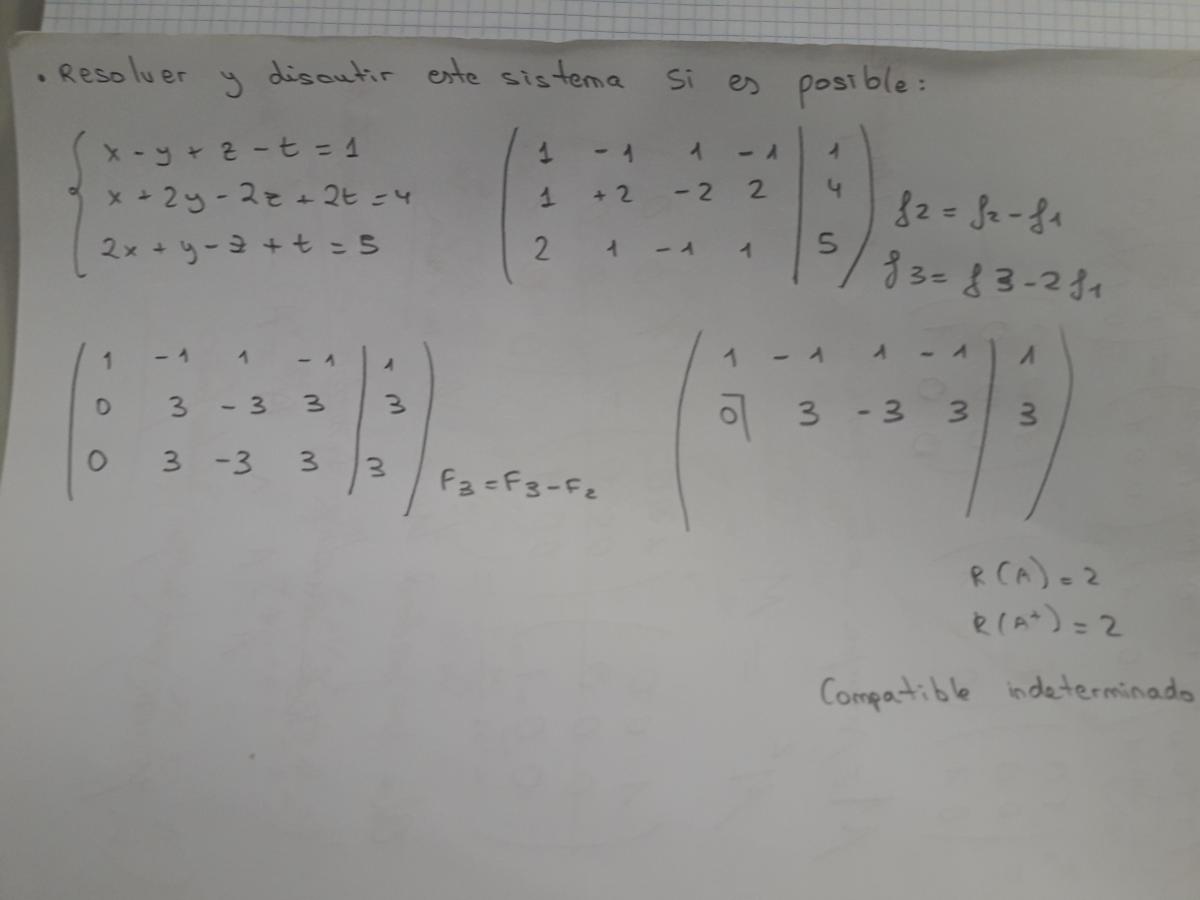 . Resolver y discutir este sistema si es posible:
x - y + z - t = 1
x + 2y - 2z + 2t = 4
2x + y - z + t = 5
1 -1 1 -1 | 1
1 +2 -2 2 | 4
2 1 -1 1 | 5
f2 = f2 - f1
f3 = f3 - 2f1
1 -1 1 -1 | 1
0 3 -3 3 | 3
0 3 -3 3 | 3
F3 = F3 - F2
1 -1 1 -1 | 1
0 3 -3 3 | 3
R(A) = 2
R(A+) = 2
Compatible indeterminado